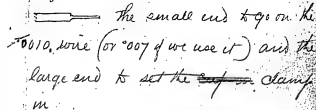 The small end to go on the
.0010. wire (or °007 if we use it) and the
large end to set the clamp
in